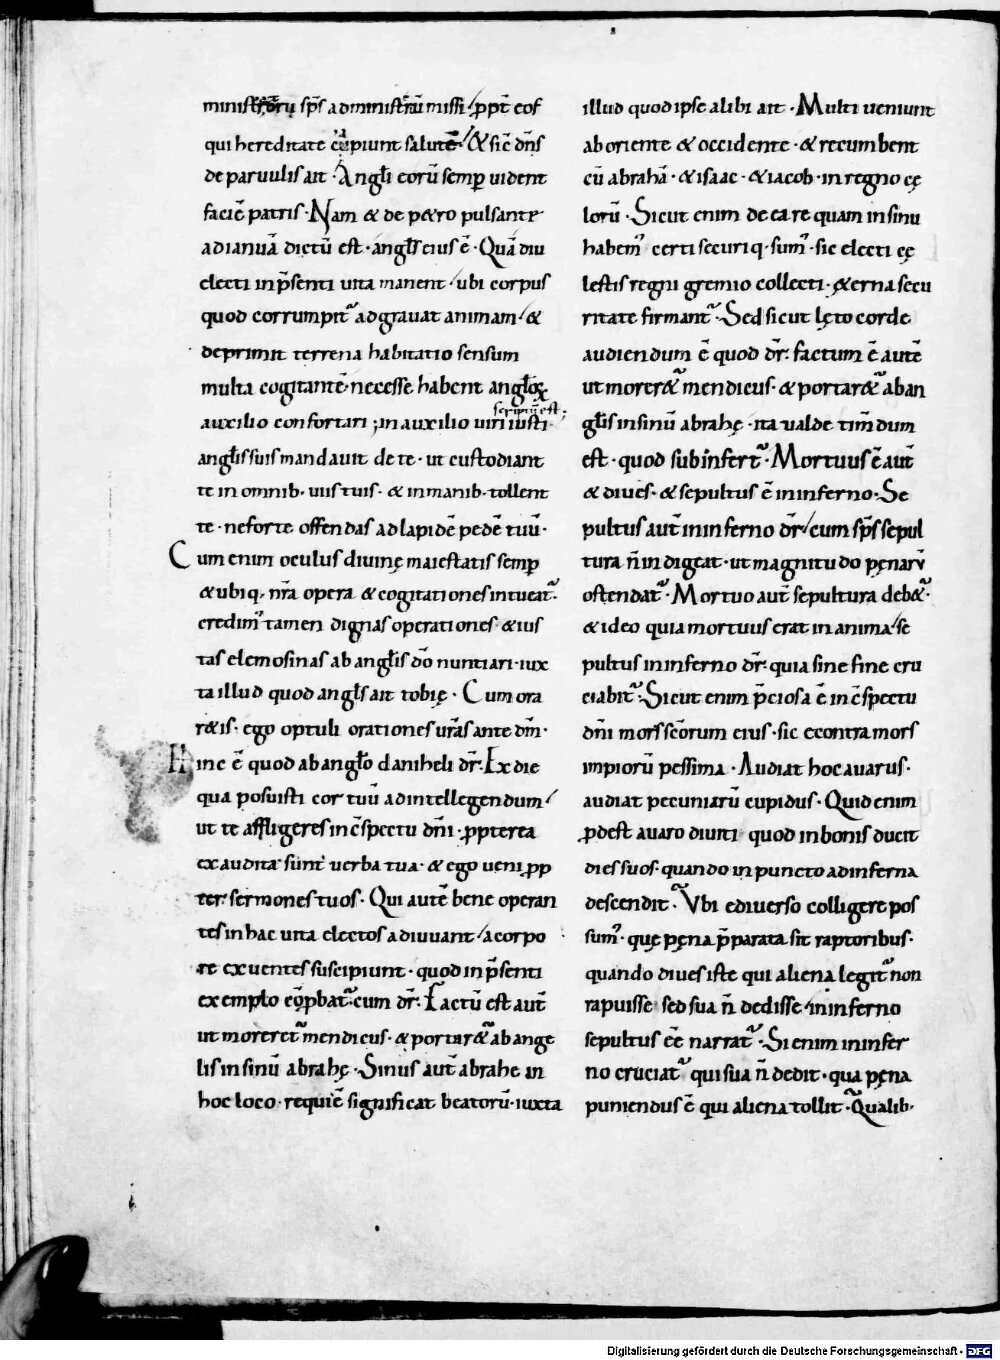 ministratorū sp̄s adminiſtr̄nū miſſi. ꝓpt̄ eoſ
qui hereditatē capiunt ſalutē. & sic̄ dn̄s
de paruulis ait. Angl̄i eorū semꝑ uident
faciē patris. Nam & de petro pulsante
ad ianuā dictū est. angl̄s eius ē. Quādiu
electi in p̄senti uita manent. ubi corpus
quod corrumpit᷑ adgrauat animam. &
deprimit terrena habitatio sensum
multa cogitantē. necesse habent angl̄oꝝ
auxilio confortari; in auxilio uiri iusti
scriptū est;
angl̄is suis mandauit de te. ut custodiant
te in omnib. uiis tuis. & in manib. tollent
te. ne forte offendas ad lapidē pedē tuū.
Cum enim oculus diuinę maiestatis semꝑ
& ubiq. nr̄a opera & cogitationes intueat᷑.
credim᷒ tamen dignas operationes & ius
tas elemosinas ab angl̄is dō nuntiari. iux
ta illud quod angl̄s ait tobię. Cum ora
retis. ego optuli orationes ur̄as ante dm̄.
Hinc ē quod ab angl̄o daniheli dr̄. Ex die
qua posuisti cor tuū ad intellegendum.
ut te affligeres in c̄spectu dn̄i. ꝓpterea
exaudita sunt uerba tua. & ego ueni ꝓp
ter sermones tuos. Qui autē bene operan
tes in hac uita electos adiuuant. a corpo
re exuentes suscipiunt. quod in p̄senti
exemplo cōꝓbat᷑. cum dr̄. Factū est aut̄
ut moreret᷑ mendicus. & portaret᷑ ab ange
lis in sinū abrahę. Sinus aut̄ abrahe in
hoc loco. requiē significat beatorū. iuxta
illud quod ipse alibi ait. Multi ueniunt
ab oriente & occidente. & recumbent
cū abrahā. & isaac. & iacob. in regno cę
lorū. Sicut enim de ea re quam in sinu
habem᷒ certi securiq. sum᷒. sic electi cę
lestis regni gremio collecti. ęterna secu
ritate firmant᷑. Sed sicut lęto corde
audiendum ē quod dr̄. factum ē autē
ut moreret᷑ mendicus. & portaret᷑ ab an
gl̄is in sinū abrahę. ita ualde tim̄dum
est. quod subinfert᷑. Mortuus ē aut̄
& diues. & sepultus ē in inferno. Se
pultus aut̄ in inferno dr̄. cum sp̄s sepul
tura n̄ indigeat. ut magnitudo pęnarū
ostendat᷑. Mortuo aut̄ sepultura debet᷑.
& ideo quia mortuus erat in anima. se
pultus in inferno dr̄. quia sine fine cru
ciabit᷑. Sicut enim p̄ciosa ē in c̄spectu
dn̄i mors sc̄orum eius. sic econtra mors
impiorū pessima. Audiat hoc auarus.
audiat pecuniarū cupidus. Quid enim
ꝓdest auaro diuiti quod in bonis ducit
dies suos. quando in puncto ad inferna
descendit. Vbi ediuerso colligere pos
sum᷒. quę pęna p̄parata sit raptoribus.
quando diues iste qui aliena legit᷑ non
rapuisse sed sua n̄ dedisse. in inferno
sepultus eē narrat᷑. Si enim in infer
no cruciat᷑ qui sua n̄ dedit. qua pęna
puniendus ē qui aliena tollit. Qualib.
Digitalisierung gefördert durch die Deutsche Forschungsgemeinschaft - DFG